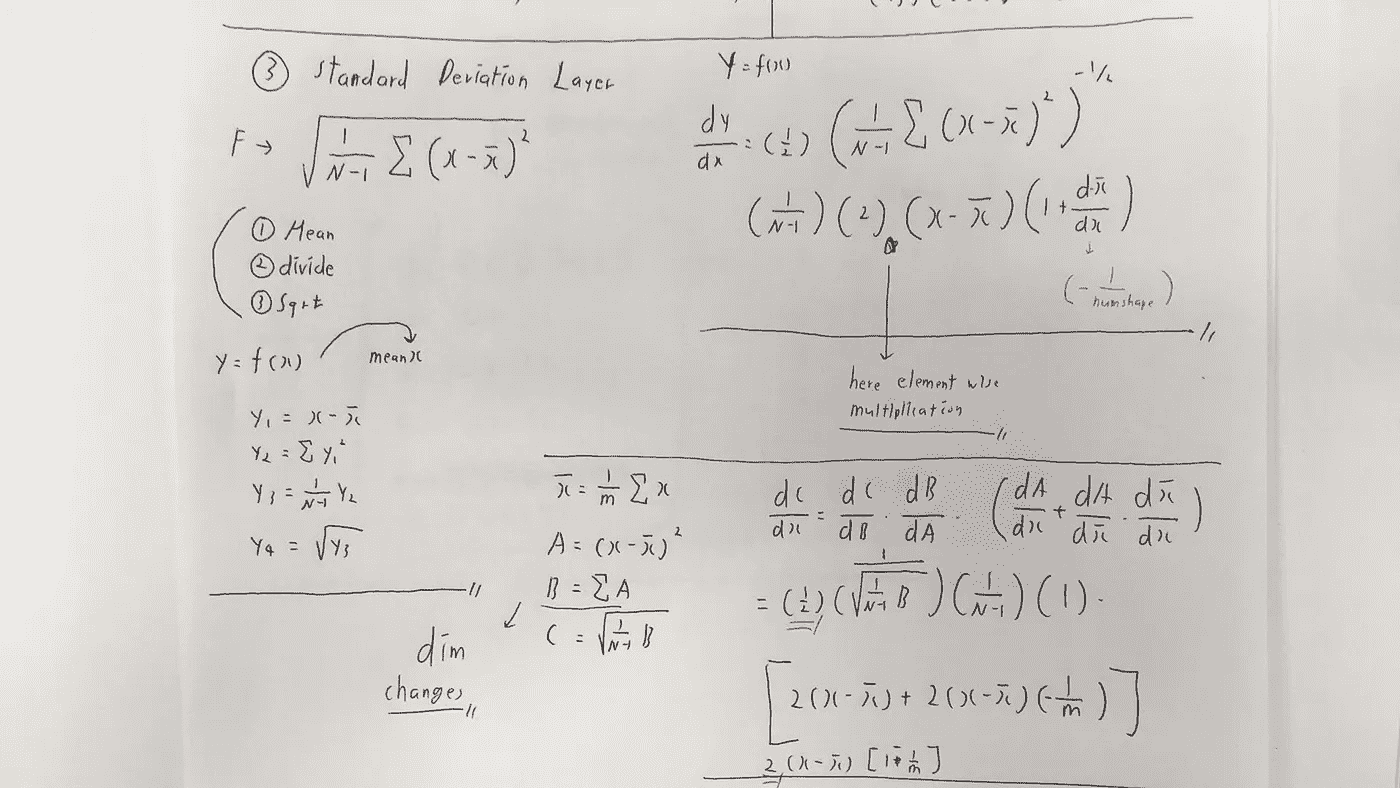 ③ Standard Deviation Layer
F → √( 1/(N-1) Σ (x - x̄)² )
① Mean
② divide
③ Sqrt
Y = f(x)
mean x
Y₁ = x - x̄
Y₂ = Σ Y₁²
Y₃ = 1/(N-1) Y₂
Y₄ = √Y₃
dim
changes
x̄ = 1/m Σ x
A = (x - x̄)²
B = Σ A
C = √( 1/(N-1) B )
Y = f(x)
dy/dx = (1/2) ( 1/(N-1) Σ (x - x̄)² )^(-1/2)
( 1/(N-1) ) (2) . (x - x̄) ( 1 + dx̄/dx )
↓
( - 1/numshape )
here element wise
multiplication
dC/dx = dC/dB . dB/dA . ( dA/dx + dA/dx̄ . dx̄/dx )
= (1/2) ( 1/√( 1/(N-1) B ) ) ( 1/(N-1) ) (1) .
[ 2(x - x̄) + 2(x - x̄) (- 1/m) ]